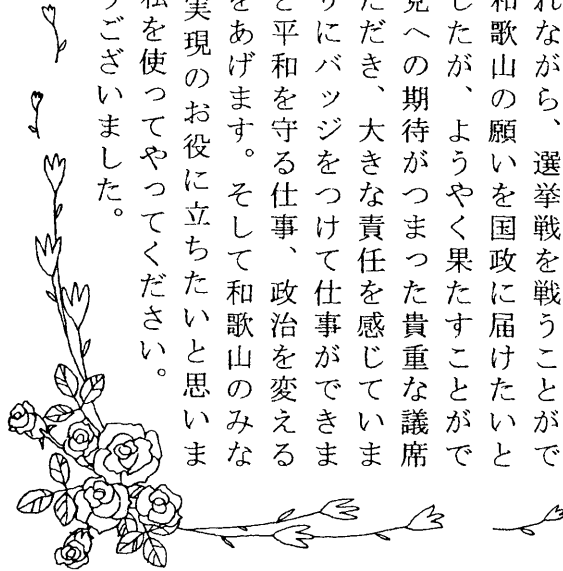 れながら、選挙戦を戦うことがで
和歌山の願いを国政に届けたいと
したが、ようやく果たすことがで
党への期待がつまった貴重な議席
ただき、大きな責任を感じていま
りにバッジをつけて仕事ができま
と平和を守る仕事、政治を変える
をあげます。そして和歌山のみな
実現のお役に立ちたいと思いま
私を使ってやってください。
うございました。